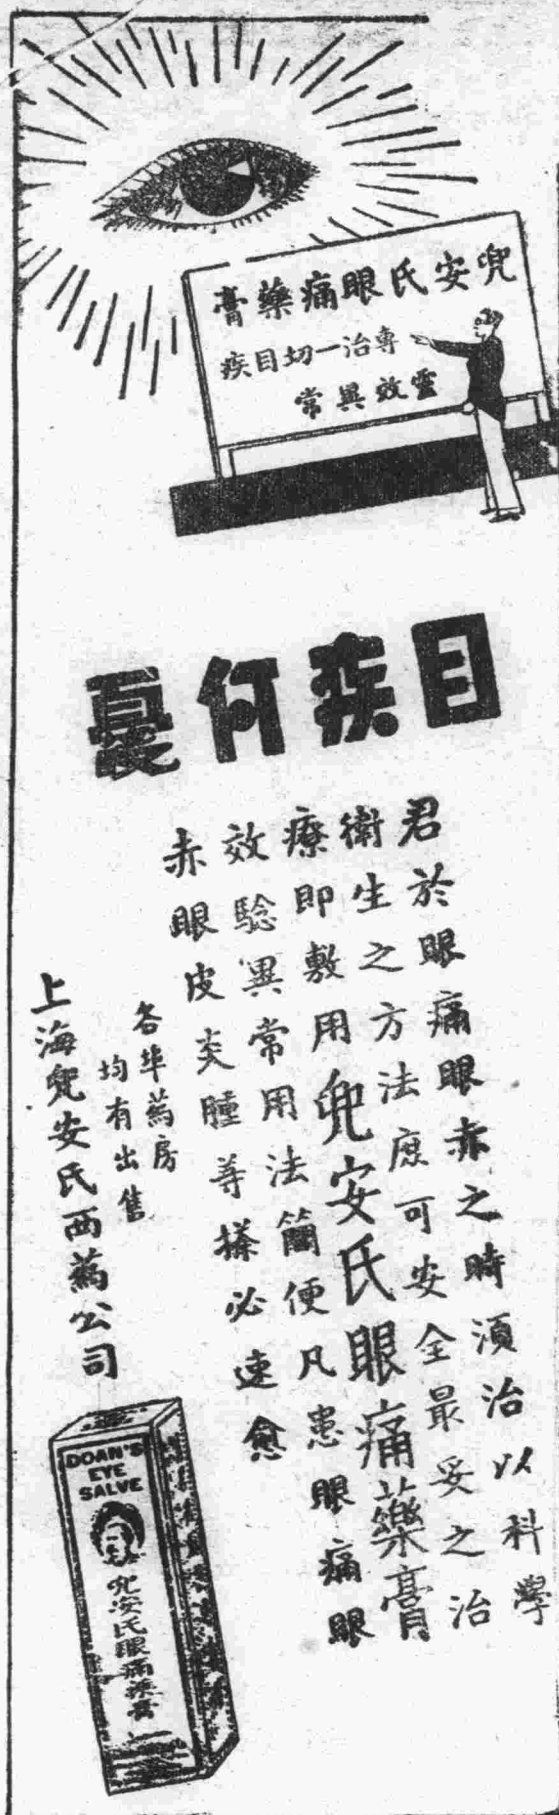 兜安氏眼痛藥膏
專治一切目疾
靈效異常
目疾何憂
君於眼痛眼赤之時須治以科學
衛生之方法庶可安全最妥之治
療即敷用兜安氏眼痛藥膏
效驗異常用法簡便凡患眼痛眼
赤眼皮炎腫等搽必速愈
各埠藥房
均有出售
上海兜安氏西藥公司
DOAN'S
EYE
SALVE
兜安氏眼痛藥膏